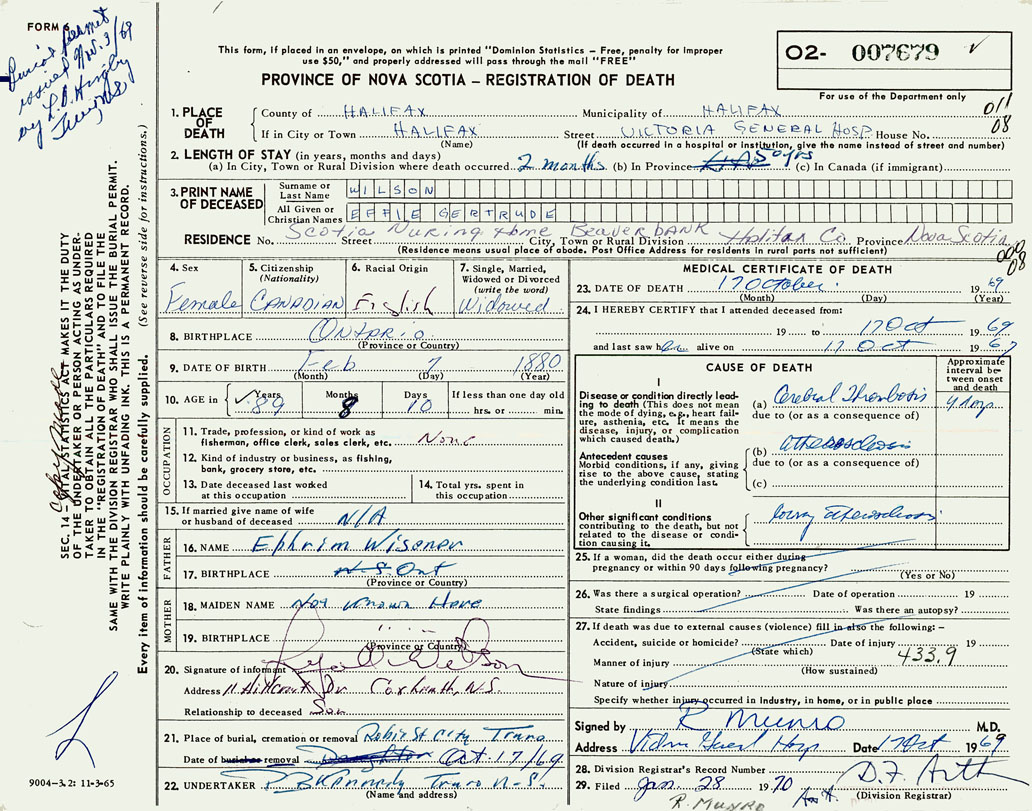 FORM 6
This form, if placed in an envelope, on which is printed "Dominion Statistics – Free, penalty for improper
use $50," and properly addressed will pass through the mail "FREE"
PROVINCE OF NOVA SCOTIA – REGISTRATION OF DEATH
O2- 007679
For use of the Department only
011
08
Burial permit
issued Nov. 3/69
by L.D.
1. PLACE OF DEATH
County of HALIFAX Municipality of HALIFAX
If in City or Town HALIFAX Street VICTORIA GENERAL HOSP. House No.
(Name) (If death occurred in a hospital or institution, give the name instead of street and number)
2. LENGTH OF STAY (in years, months and days)
(a) In City, Town or Rural Division where death occurred 2 months (b) In Province 50 yrs (c) In Canada (if immigrant)
3. PRINT NAME OF DECEASED
Surname or Last Name WILSON
All Given or Christian Names EFFIE GERTRUDE
RESIDENCE No. Scotia Nuring Home Street BEAVERBANK City, Town or Rural Division Halifax Co. Province Nova Scotia
(Residence means usual place of abode. Post Office Address for residents in rural parts not sufficient)
08
4. Sex
Female
5. Citizenship (Nationality)
CANADIAN
6. Racial Origin
English
7. Single, Married, Widowed or Divorced (write the word)
Widowed
8. BIRTHPLACE ONTARIO
(Province or Country)
9. DATE OF BIRTH Feb 7 1880
(Month) (Day) (Year)
10. AGE in Years 89 Months 8 Days 10 If less than one day old
hrs. or min.
OCCUPATION
11. Trade, profession, or kind of work as
fisherman, office clerk, sales clerk, etc. None
12. Kind of industry or business, as fishing,
bank, grocery store, etc.
13. Date deceased last worked
at this occupation
14. Total yrs. spent in
this occupation
15. If married give name of wife
or husband of deceased N/A
FATHER
16. NAME Ephrim Wisener
17. BIRTHPLACE N.S. Ont
(Province or Country)
MOTHER
18. MAIDEN NAME Not known Here
19. BIRTHPLACE
(Province or Country)
20. Signature of informant
Address 11 Hillcrest Dr Coxheath, N.S.
Relationship to deceased Son
21. Place of burial, cremation or removal Robie St City Truro
Date of burial or removal Oct 17/69
22. UNDERTAKER Truro N-S.
(Name and address)
MEDICAL CERTIFICATE OF DEATH
23. DATE OF DEATH 17 October 19 69
(Month) (Day) (Year)
24. I HEREBY CERTIFY that I attended deceased from:
19 to 17 Oct 19 69
and last saw her alive on 17 Oct 19 67
CAUSE OF DEATH
Approximate interval between onset and death
I
Disease or condition directly leading to death (This does not mean the mode of dying, e.g., heart failure, asthenia, etc. It means the disease, injury, or complication which caused death.)
(a) Cerebral Thrombosis
due to (or as a consequence of)
Antecedent causes
Morbid conditions, if any, giving rise to the above cause, stating the underlying condition last.
(b) Atherosclerosis
due to (or as a consequence of)
(c)
II
Other significant conditions contributing to the death, but not related to the disease or condition causing it.
25. If a woman, did the death occur either during
pregnancy or within 90 days following pregnancy?
(Yes or No)
26. Was there a surgical operation? Date of operation 19
State findings Was there an autopsy?
27. If death was due to external causes (violence) fill in also the following: –
Accident, suicide or homicide? Date of injury 19
(State which)
Manner of injury 433.9
(How sustained)
Nature of injury
Specify whether injury occurred in Industry, in home, or in public place
Signed by R Munro M.D.
Address Date 17 Oct 19 69
28. Division Registrar's Record Number
29. Filed Jan 28 19 70
(Division Registrar)
R. MUNRO
SEC. 14 – VITAL STATISTICS ACT MAKES IT THE DUTY
OF THE UNDERTAKER OR PERSON ACTING AS UNDER-
TAKER TO OBTAIN ALL THE PARTICULARS REQUIRED
IN THE "REGISTRATION OF DEATH" AND TO FILE THE
SAME WITH THE DIVISION REGISTRAR WHO SHALL ISSUE THE BURIAL PERMIT.
WRITE PLAINLY WITH UNFADING INK. THIS IS A PERMANENT RECORD.
Every item of information should be carefully supplied. (See reverse side for instructions.)
9004–3.2: 11-3-65